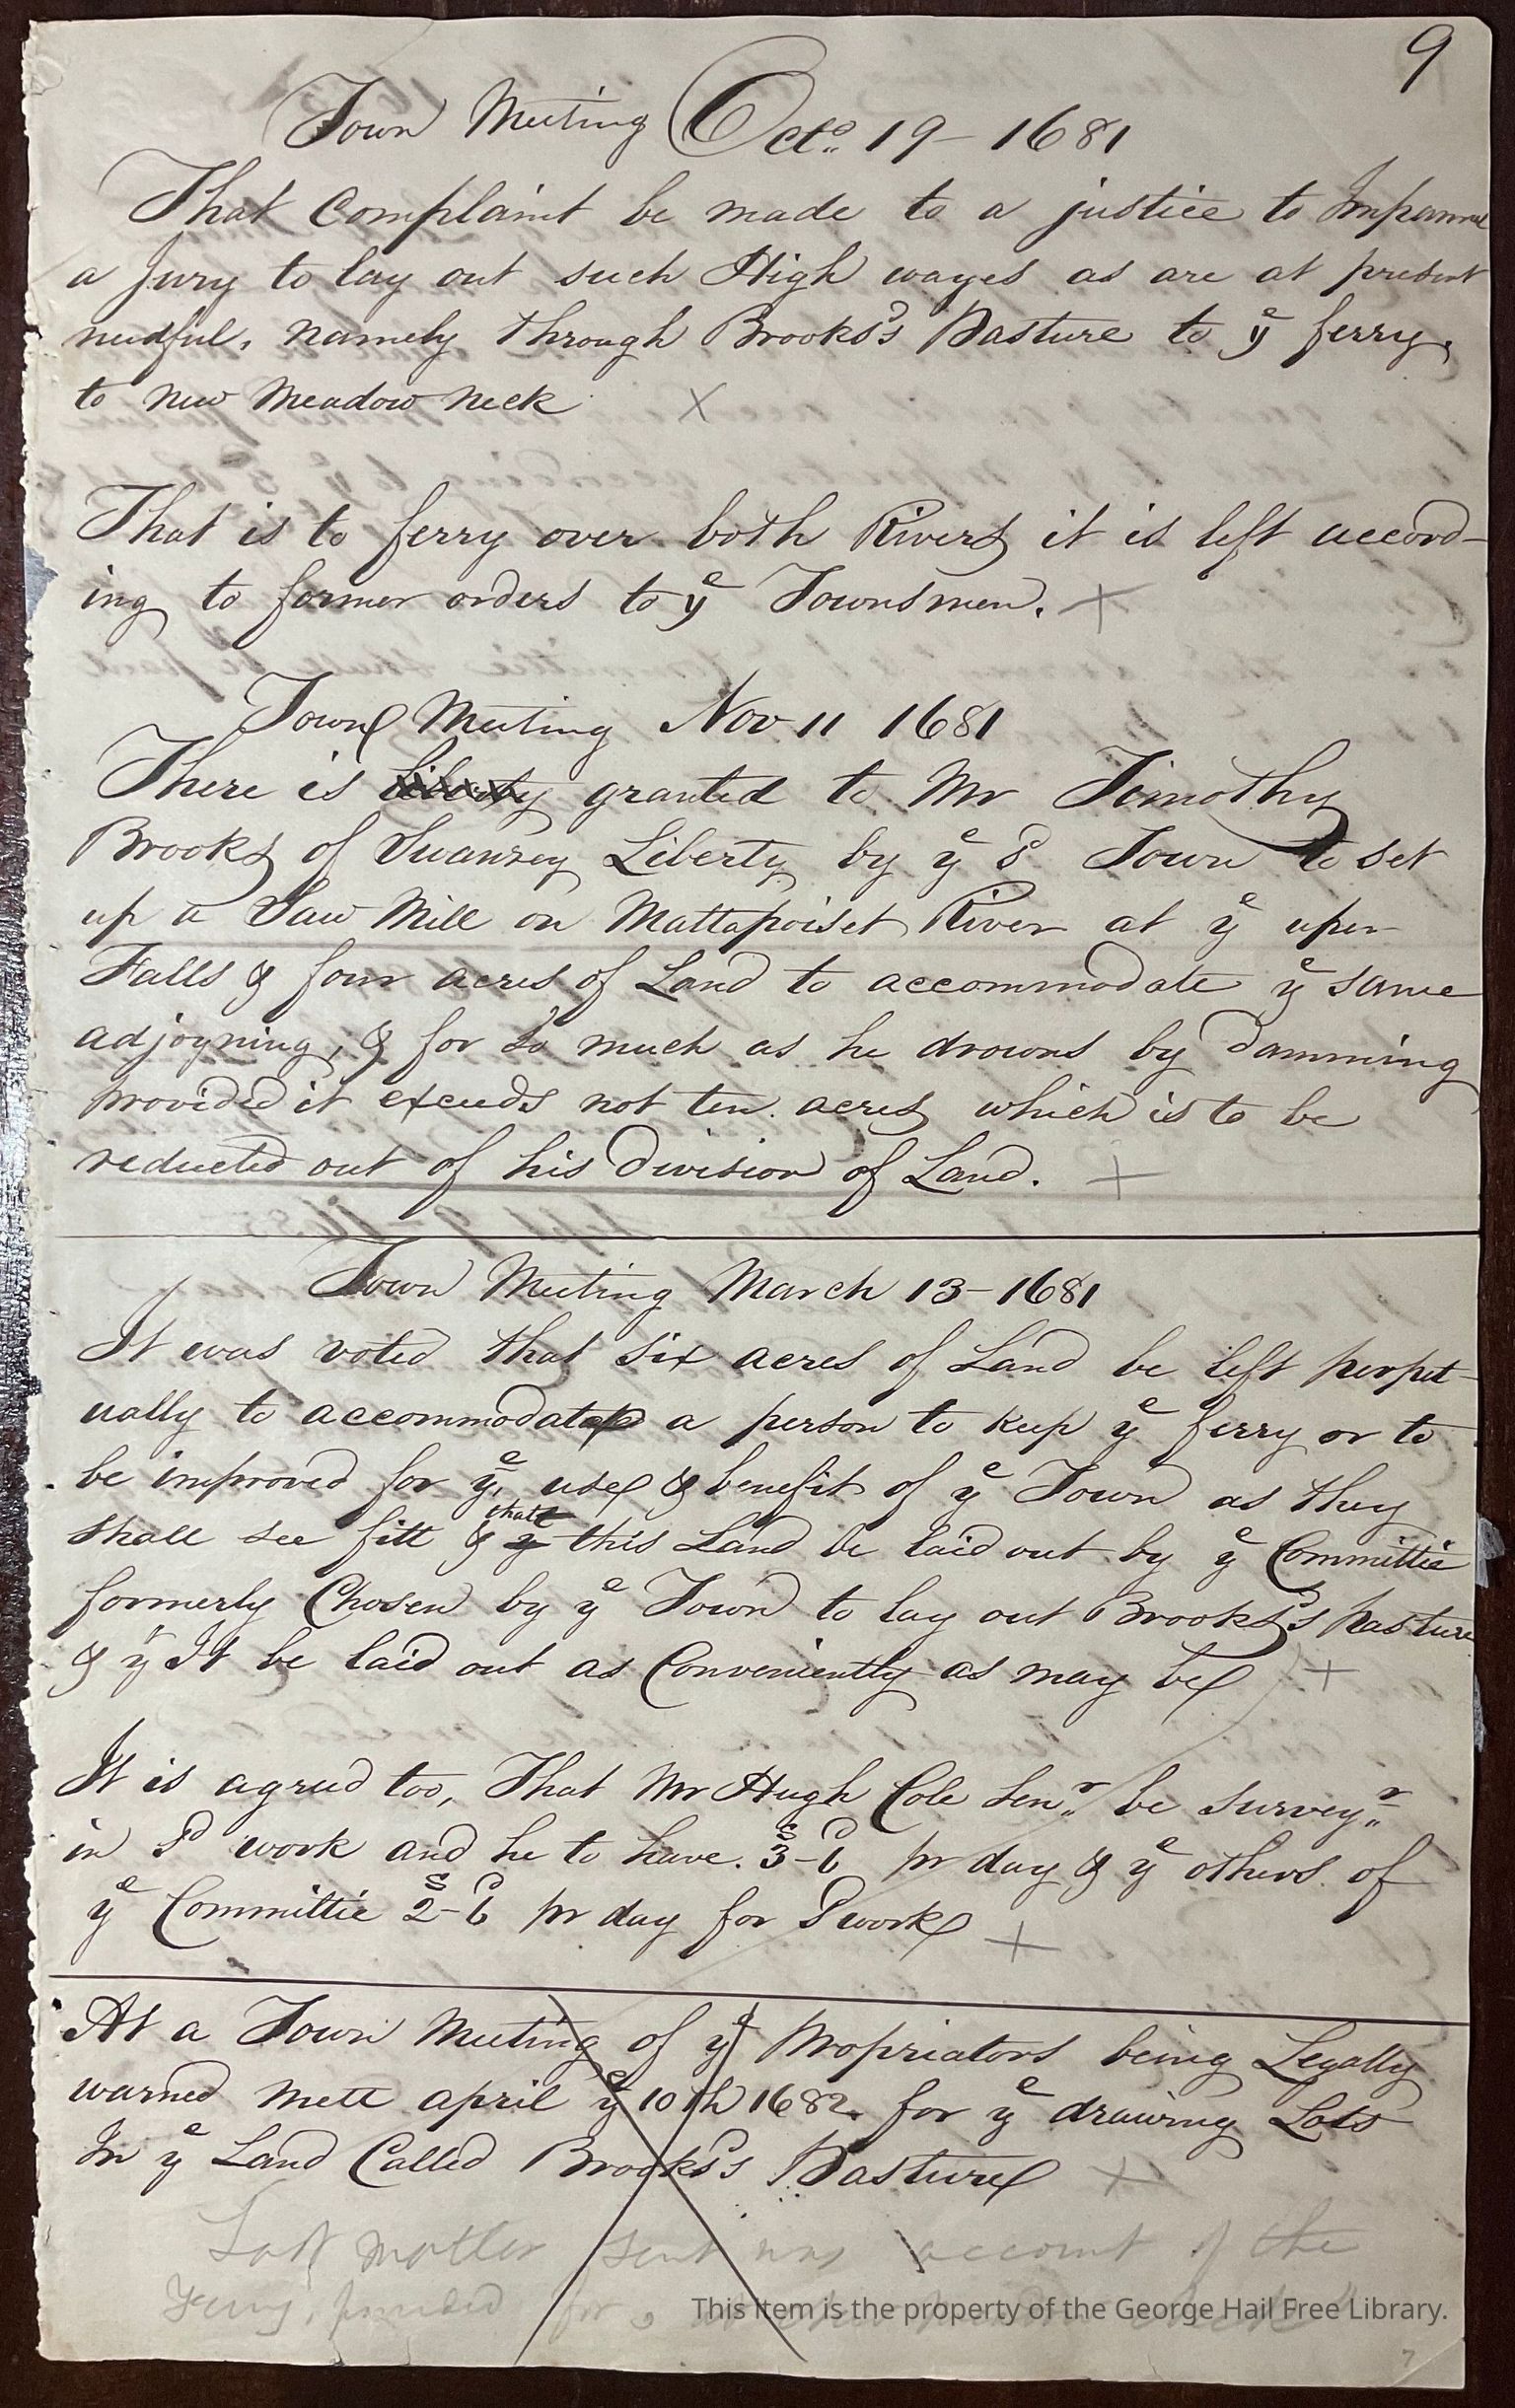 9
Town Meeting Octo. 19 - 1681
That Complaint be made to a justice to Impannel
a Jury to lay out such High wayes as are at present
needful, namely through Brooks's Pasture to ye ferry,
to new Meadow neck X
That is to ferry over both Rivers it is left accord-
ing to former orders to ye Townsmen. X
Town Meeting Nov 11 1681
There is liberty granted to Mr Timothy
Brooks of Swanzey Liberty by ye sd Town to set
up a Saw Mill on Mattapoiset River at ye uper
Falls & four acres of Land to accommodate ye same
adjoyning, & for so much as he drowns by damming
provided it exceeds not ten acres which is to be
reducted out of his division of Land. +
Town Meeting March 13 - 1681
It was voted that six acres of Land be left perpet-
ually to accommodate a person to keep ye ferry or to
be improved for ye use & benefit of ye Town as they
shall see fitt & ye that this Land be laid out by ye Committie
formerly Chosen by ye Town to lay out Brooks's Pasture
& yt It be laid out as Conveniently as may be +
It is agreed too, That Mr Hugh Cole Senr be Surveyr
in sd work and he to have 3s-6d pr day & ye others of
ye Committie 2s-6d pr day for sd work +
At a Town Meeting of ye Propriators being Legally
warned mett april ye 10th 1682 for ye drawing Lots
In ye Land Called Brooks's Pasture +
Last matter sent was account of the
Ferry, for
This Item is the property of the George Hail Free Library.
7